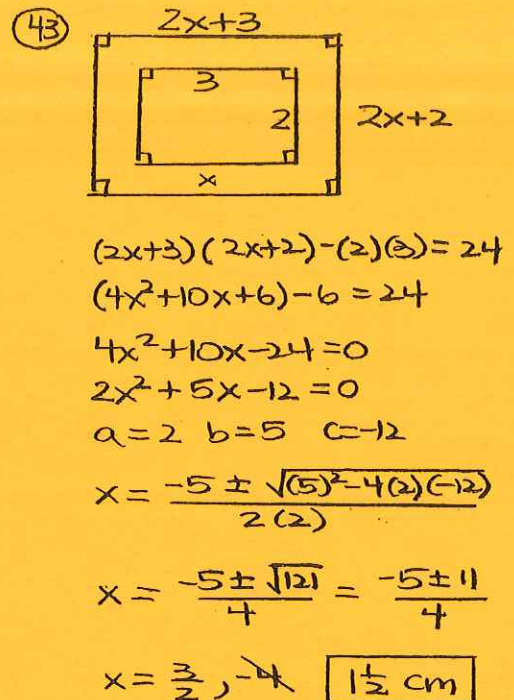 43
2x+3
3
2
2x+2
x
(2x+3)(2x+2)-(2)(3)=24
(4x²+10x+6)-6=24
4x²+10x-24=0
2x²+5x-12=0
a=2 b=5 c=-12
x = (-5 ± √((5)²-4(2)(-12))) / 2(2)
x = (-5±√121)/4 = (-5±11)/4
x = 3/2, -4 1½ cm